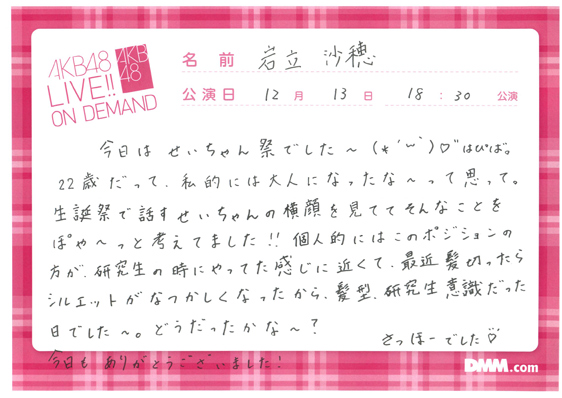 AKB48
LIVE!!
ON DEMAND
AKB
48
名前 岩立 沙穂
公演日 12月 13日 18:30 公演
今日は せいちゃん祭でした〜(*´ω`)♡はぴば。
22歳だって、私的には大人になったな〜って思って。
生誕祭で話すせいちゃんの横顔を見ててそんなことを
ぽや〜っと考えてました!!個人的にはこのポジションの
方が、研究生の時にやってた感じに近くて、最近髪切ったら
シルエットがなつかしくなったから、髪型、研究生意識だった
日でした〜。どうだったかな〜?
さっほーでした♡
今日も ありがとうございました!
DMM.com